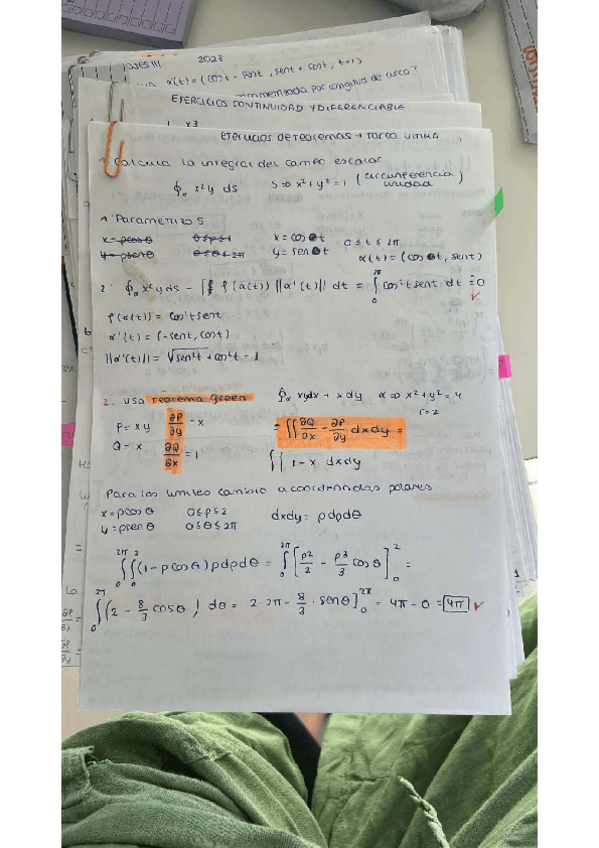 2023
α(t) = (cost - sent, sent + cost, t+1)
por longitud de arco?
EJERCICIOS CONTINUIDAD Y DIFERENCIABLE
EJERCICIOS DE TEOREMAS → TAREA ULTIMA
Calcula la integral del campo escalar
∮α x²y ds S => x² + y² = 1 (circunferencia unidad)
1. Parametrizo S
x = ρcosθ 0≤ρ≤1 x = cos t 0 ≤ t ≤ 2π
y = ρsenθ 0≤θ≤2π y = sen t α(t) = (cos t, sent)
2. ∮α x²y ds = ∫ f(α(t)) ||α'(t)|| dt = ∫₀^2π cos²t sent dt = 0 ✓
f(α(t)) = cos²t sent
α'(t) = (-sent, cost)
||α'(t)|| = √sen²t + cos²t = 1
2. usa teorema green ∮α xydx + x dy α => x² + y² = 4
r = 2
P = xy ∂P/∂y = x = ∫∫ ∂Q/∂x - ∂P/∂y dxdy =
Q = x ∂Q/∂x = 1 ∫∫ 1 - x dxdy
Para los limites cambio a coordenadas polares
x = ρcosθ 0 ≤ ρ ≤ 2 dxdy = ρdρdθ
y = ρsenθ 0 ≤ θ ≤ 2π
∫₀^2π ∫₀^2 (1 - ρcosθ) ρdρdθ = ∫₀^2π [ρ²/2 - ρ³/3 cosθ]₀^2 =
∫₀^2π (2 - 8/3 cosθ) dθ = 2·2π - 8/3 · senθ]₀^2π = 4π - 0 = 4π ✓